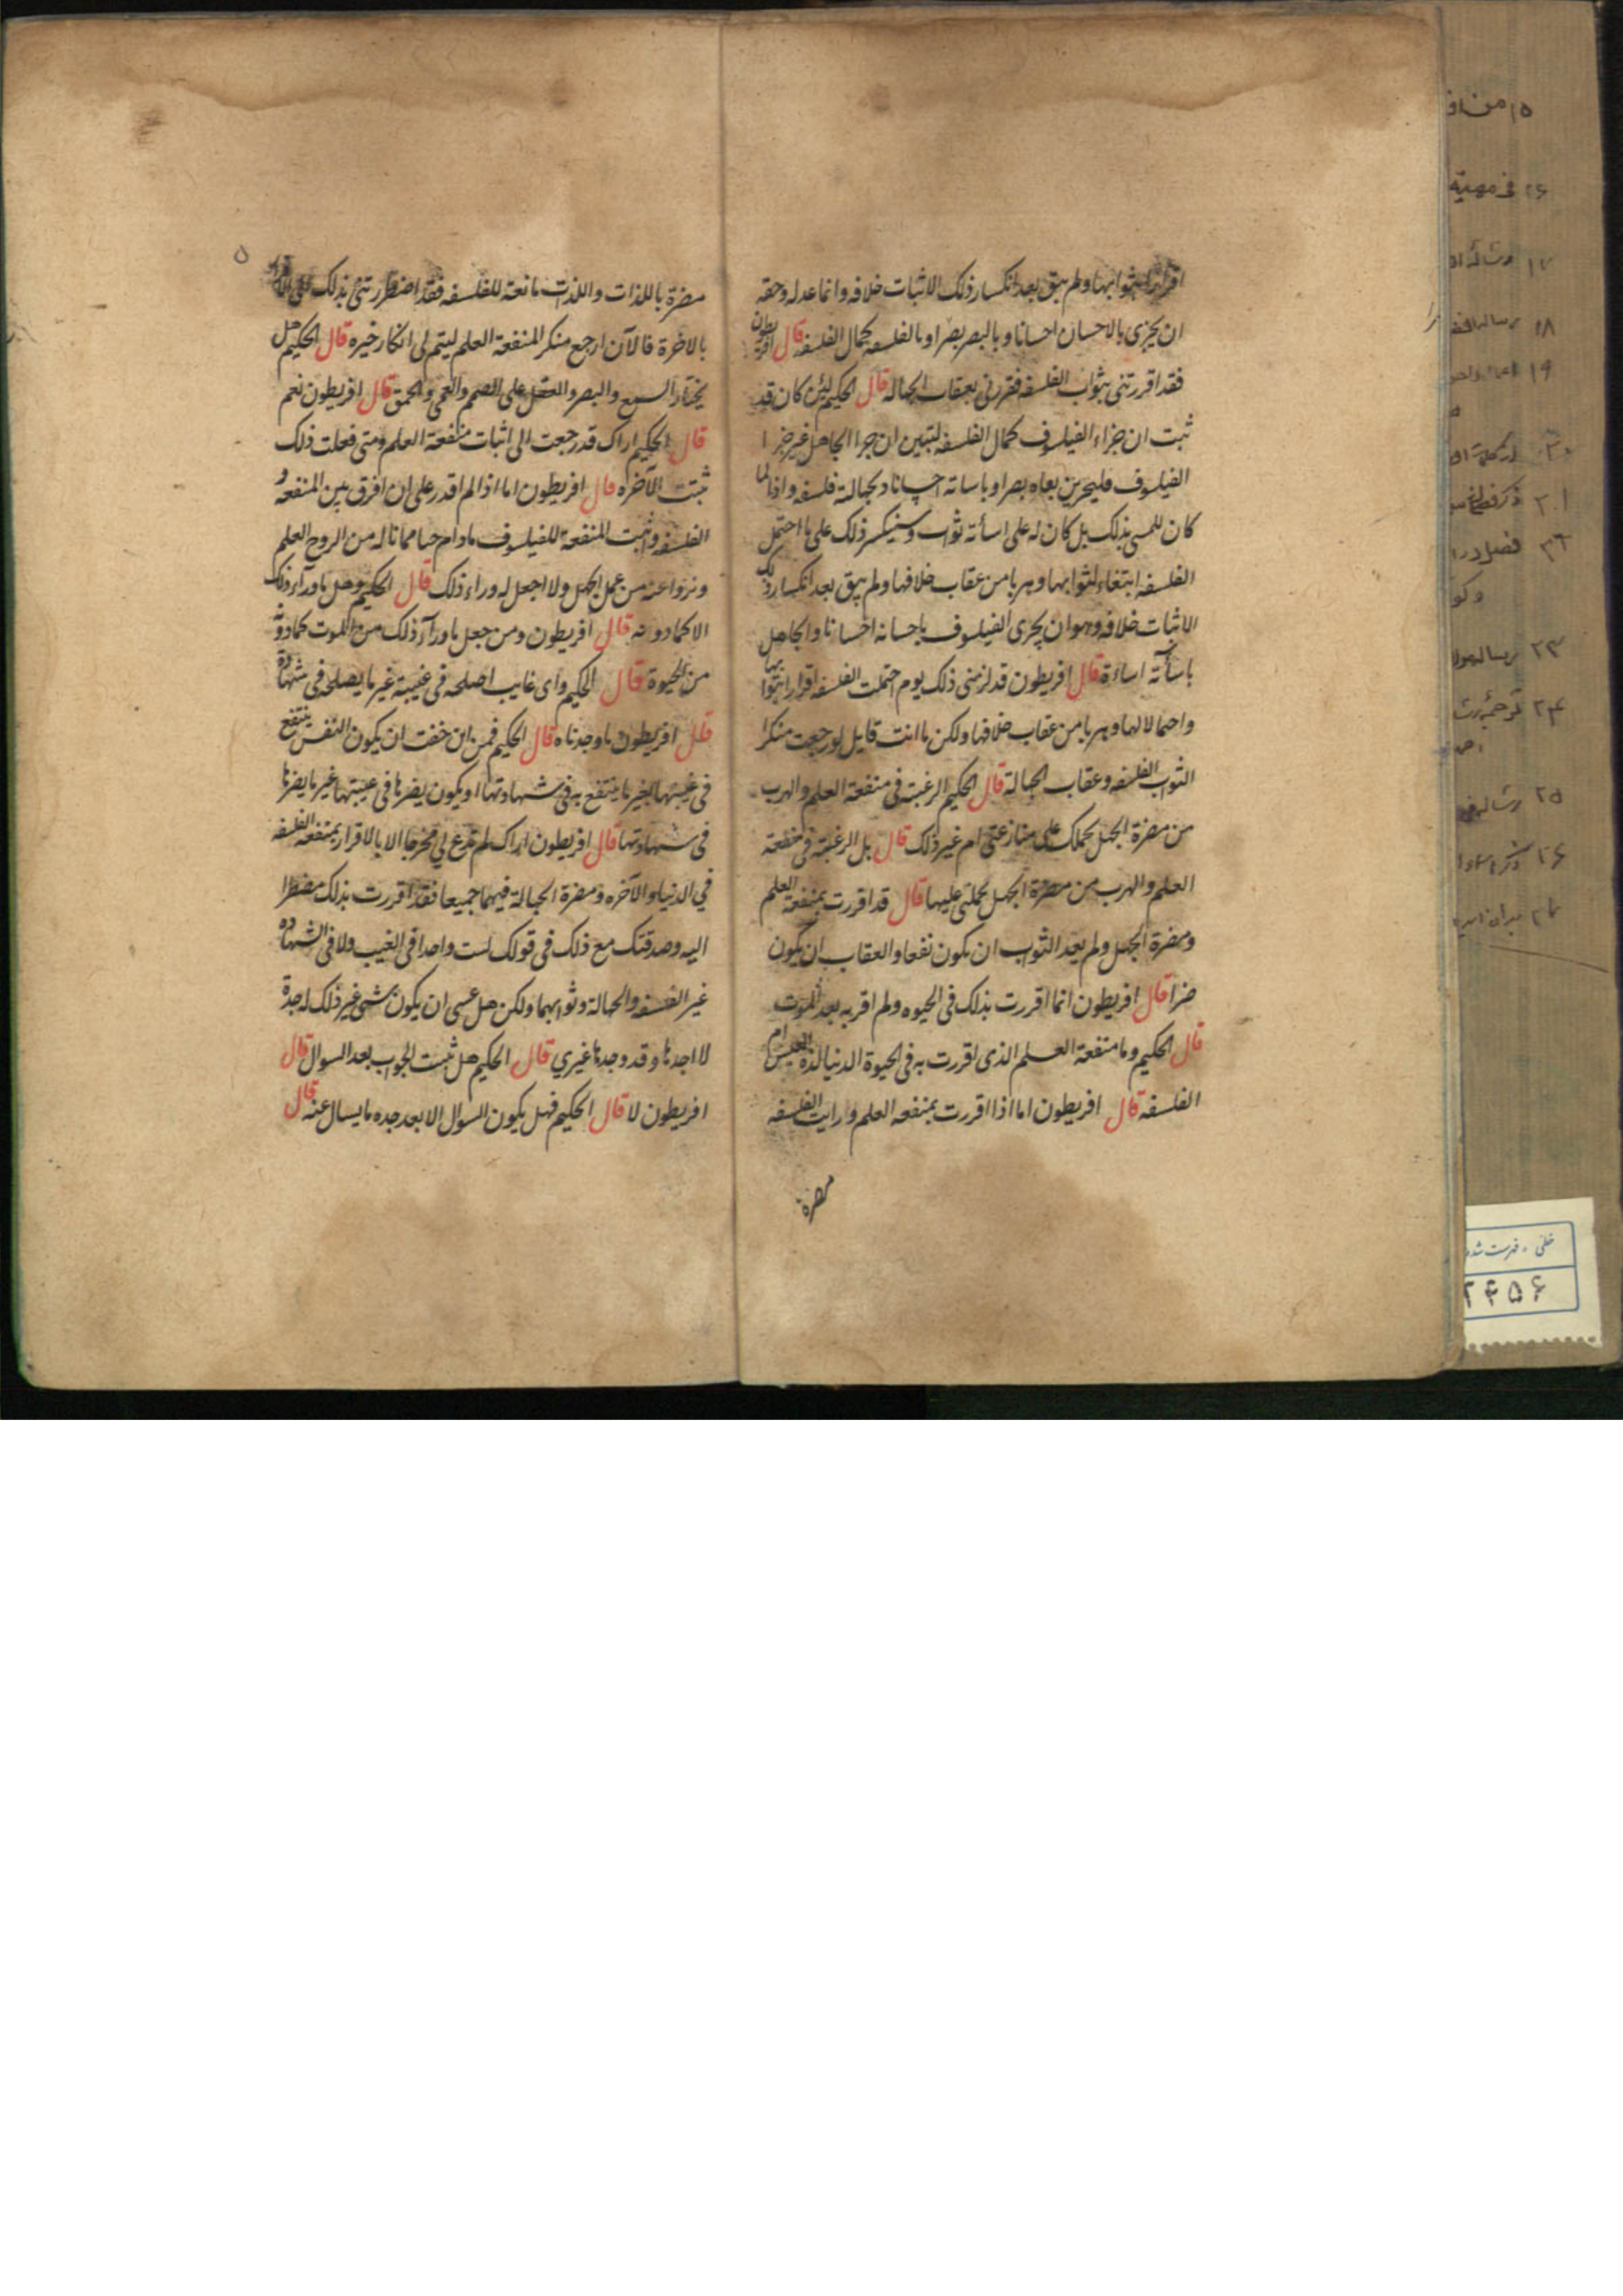 اقرارا بثوابها ولم يبق بعد انكسار ذلك الاثبات خلافه وانما عدله وحقه
ان يجزى بالاحسان احسانا وبالبصر بصرا وبالفلسفه كمال الفلسفه قال افريطون
فقد اقررتنى بثواب الفلسفه فقررنى بعقاب الجهاله قال الحكيم لئن كان قد
ثبت ان جزاء الفيلسوف كمال الفلسفه ليتبين ان جزا الجاهل غير جزا
الفيلسوف فليجزين بعماه بصرا وباساته احسانا وبجهالته فلسفه واذا لما
كان للمسى بذلك بل كان له على اسأته ثواب وسينكسر ذلك على ما احتمل
الفلسفه ابتغاء لثوابها وهربا من عقاب خلافها ولم يبق بعد انكسار ذلك
الاثبات خلافه وهو ان يجزى الفيلسوف باحسانه احسانا والجاهل
باسأته اساءة قال افريطون قد لزمنى ذلك يوم احتملت الفلسفه اقرارا بثوابها
واحتمالا لها وهربا من عقاب خلافها ولكن ما انت قايل لو رجعت منكرا
الثواب الفلسفه وعقاب الجهالة قال الحكيم الرغبة فى منفعة العلم والهرب
من مضرة الجهل يحملك على منازعتى ام غير ذلك قال بل الرغبة فى منفعة
العلم والهرب من مضرة الجهل يحملنى عليها قال قد اقررت بمنفعة العلم
ومضرة الجهل ولم يعد الثواب ان يكون نفعا والعقاب ان يكون
ضرا قال افريطون انما اقررت بذلك فى الحيوه ولم اقر به بعد الموت
قال الحكيم وما منفعة العلم الذى اقررت به فى الحيوة الدنيا لذة العيش ام
الفلسفه قال افريطون اما اذا اقررت بمنفعه العلم ورايت الفلسفه
مضرة
٥
مضرة باللذات واللذات مانعة للفلسفه فقد اضطررتنى بذلك الى
بالاخرة فالآن ارجع منكرا لمنفعة العلم ليتم لى انكار خيره قال الحكيم هل
يختار السمع والبصر والعقل على الصمم والعمى والحمق قال افريطون نعم
قال الحكيم اراك قد رجعت الى اثبات منفعة العلم ومتى فعلت ذلك
ثبتت الآخره قال افريطون اما اذا لم اقدر على ان افرق بين المنفعه و
الفلسفه واثبت المنفعة للفيلسوف مادام حيا مما ناله من الروح العلم
ونزوا عنه من عمل الجهل ولا اجعل له وراء ذلك قال الحكيم وهل ما وراء ذلك
الا كما دونه قال افريطون ومن جعل ما ورآء ذلك من الموت كما دونه
من الحيوة قال الحكيم واى غايب اصلحه فى غيبته غير ما يصلحه فى شهادة
قال افريطون ما وجدناه قال الحكيم فمن اين خفت ان يكون النفس ينتفع
فى غيبتها بغير ما ينتفع به فى شهادتها او يكون يضرها فى غيبتها غير ما يضرها
فى شهادتها قال افريطون اراك لم تدع لى مخرجا الا بالاقرار بمنفعه الفلسفه
في الدنيا والآخره ومضرة الجهالة فيهما جميعا فقد اقررت بذلك مضطرا
اليه وصدقتك مع ذلك فى قولك لست واحدا فى الغيب ولا فى الشهاده
غير الفلسفه والجهالة وثوابهما ولكن هل عسى ان يكون شى غير ذلك له جدة
لا اجدها وقد وجدها غيري قال الحكيم هل ثبت الجواب بعد السوال قال
افريطون لا قال الحكيم فهل يكون السوال الا بعد جده ما يسال عنه قال
١٥ من
١٦ فى مهية
١٧ رسالة
١٨ رساله
١٩
٢٠
٢١ ذكر
٢٢ فصل در
٢٣ رساله
٢٤ ترجمة
٢٥ رساله
٢٦
٢٧
خطى - فهرست شده
٢٤٥۶